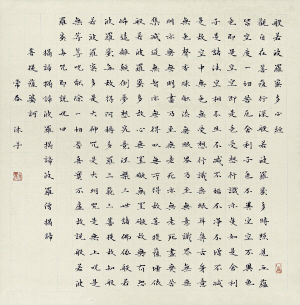 般若波羅蜜多心經
觀自在菩薩行深般若波羅蜜多時照見五蘊
皆空度一切苦厄舍利子色不異空空不異色
色即是空空即是色受想行識亦復如是舍利
子是諸法空相不生不滅不垢不淨不增不減
是故空中無色無受想行識無眼耳鼻舌身意
無色聲香味觸法無眼界乃至無意識界無無
明亦無無明盡乃至無老死亦無老死盡無苦
集滅道無智亦無得以無所得故菩提薩埵依
般若波羅蜜多故心無罣礙無罣礙故無有恐
怖遠離顛倒夢想究竟涅槃三世諸佛依般若
波羅蜜多故得阿耨多羅三藐三菩提故知般
若波羅蜜多是大神咒是大明咒是無上咒是
無等等咒能除一切苦真實不虛故說般若波
羅蜜多咒即說咒曰
揭諦揭諦波羅揭諦波羅僧揭諦
菩提薩婆訶
常春沐手